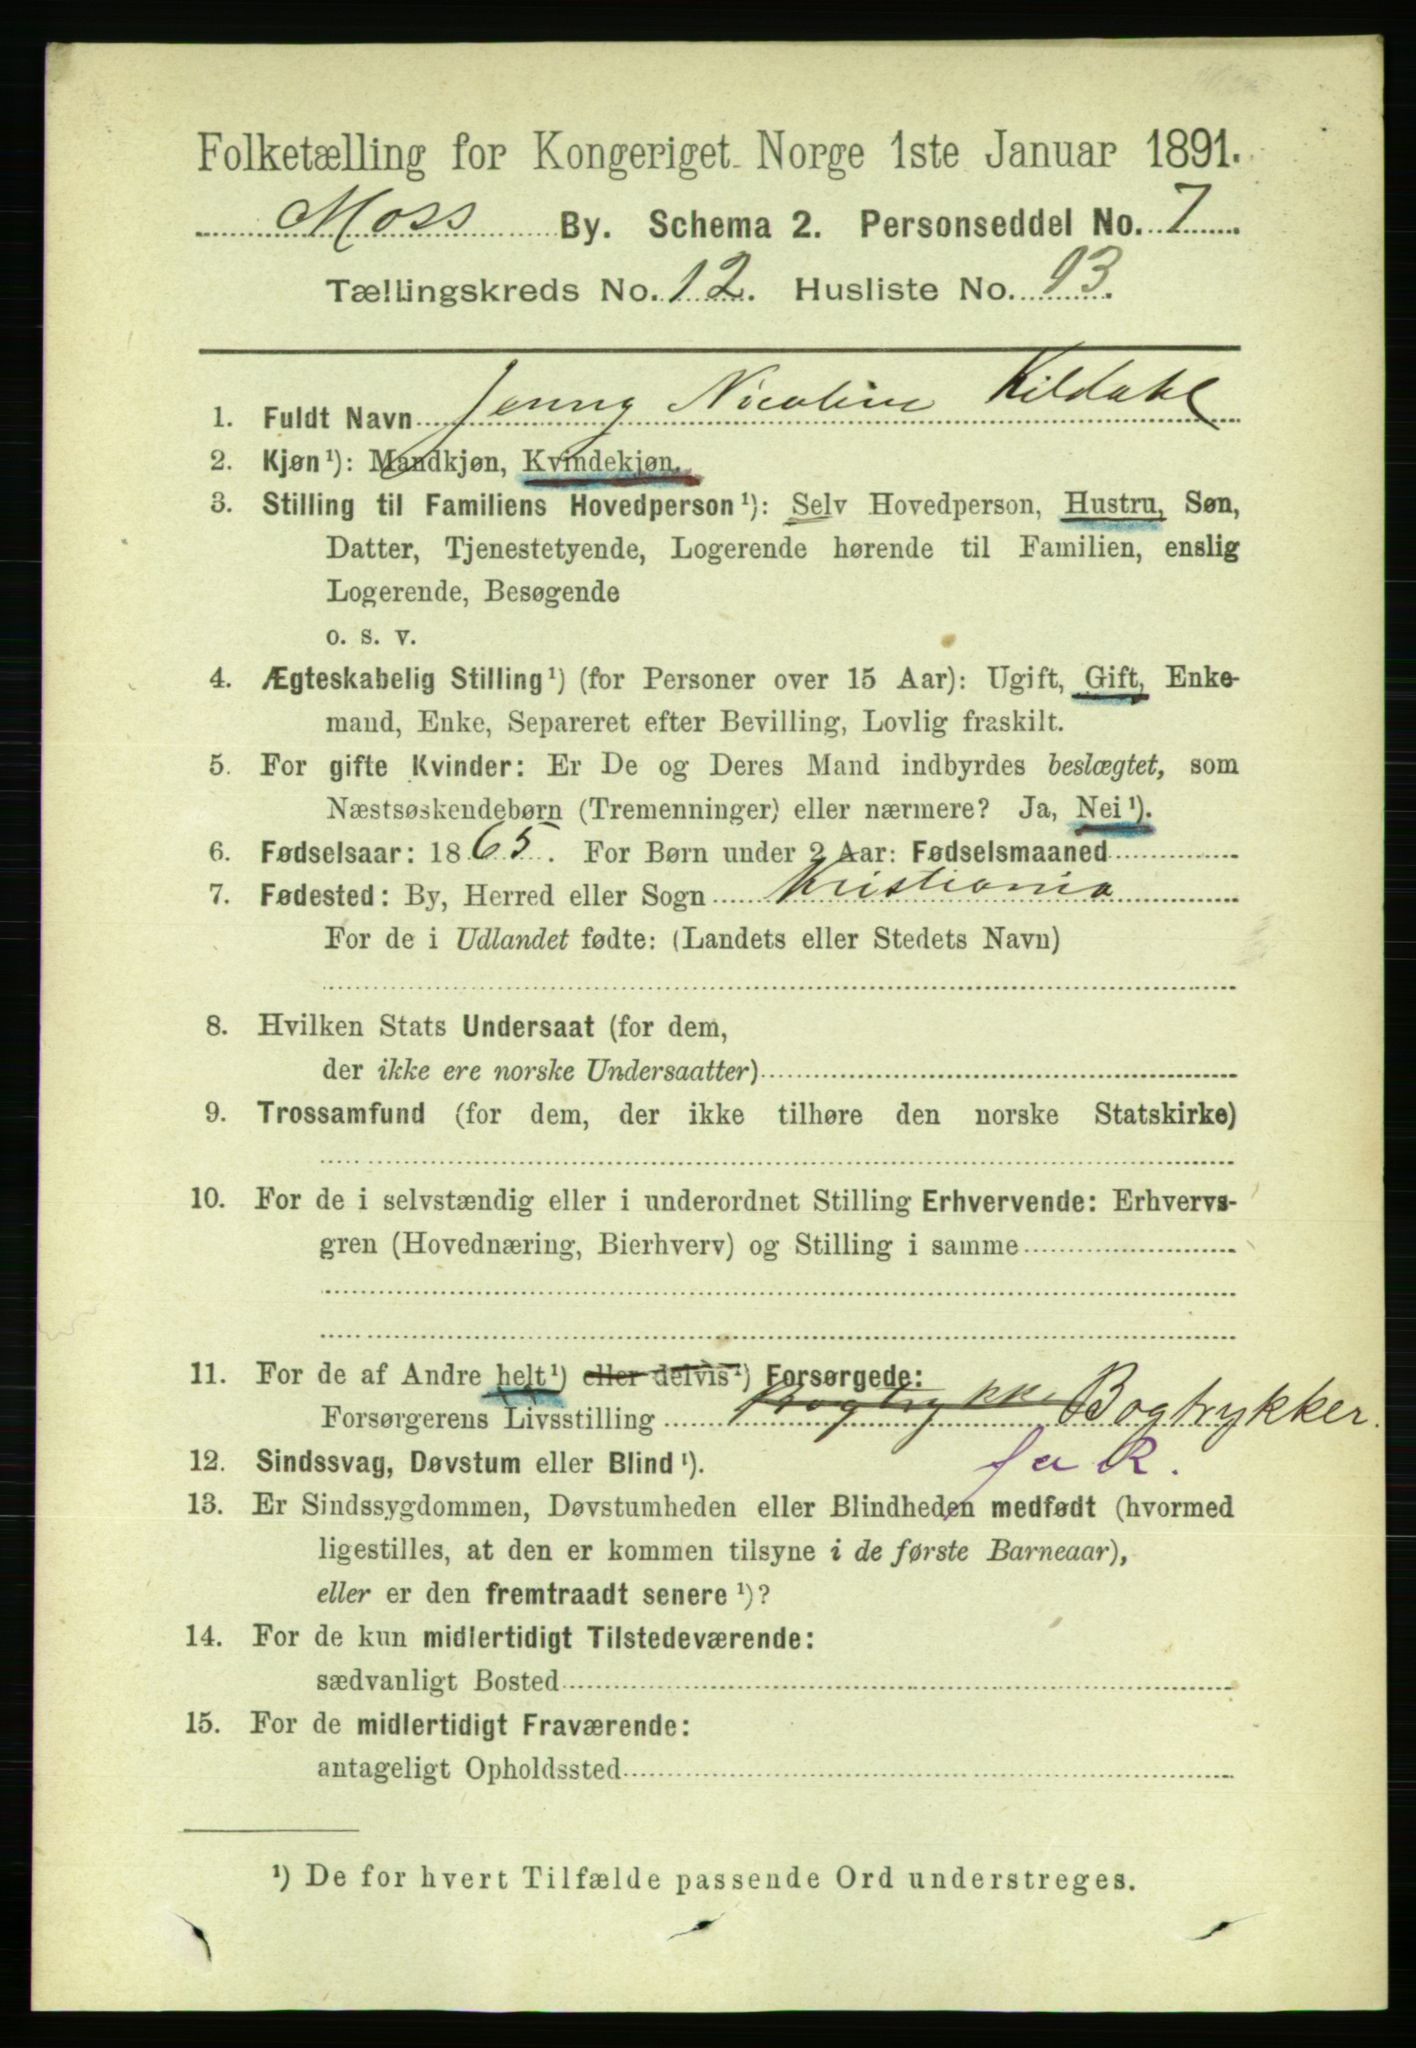 Folketælling for Kongeriget Norge 1ste Januar 1891.
Moss By. Schema 2. Personseddel No. 7
Tællingskreds No. 12. Husliste No. 93.
1. Fuldt Navn Jenny Nicoline Kildahl
2. Kjøn¹): Mandkjøn, Kvindekjøn.
3. Stilling til Familiens Hovedperson¹): Selv Hovedperson, Hustru, Søn,
Datter, Tjenestetyende, Logerende hørende til Familien, enslig
Logerende, Besøgende
o. s. v.
4. Ægteskabelig Stilling¹) (for Personer over 15 Aar): Ugift, Gift, Enke-
mand, Enke, Separeret efter Bevilling, Lovlig fraskilt.
5. For gifte Kvinder: Er De og Deres Mand indbyrdes beslægtet, som
Næstsøskendebørn (Tremenninger) eller nærmere? Ja, Nei¹).
6. Fødselsaar: 1865. For Børn under 2 Aar: Fødselsmaaned
7. Fødested: By, Herred eller Sogn Kristiania
For de i Udlandet fødte: (Landets eller Stedets Navn)
8. Hvilken Stats Undersaat (for dem,
der ikke ere norske Undersaatter)
9. Trossamfund (for dem, der ikke tilhøre den norske Statskirke)
10. For de i selvstændig eller i underordnet Stilling Erhvervende: Erhvervs-
gren (Hovednæring, Bierhverv) og Stilling i samme
11. For de af Andre helt¹) eller delvis¹) Forsørgede:
Forsørgerens Livsstilling Bogtrykke Bogtrykker.
12. Sindssvag, Døvstum eller Blind¹).
13. Er Sindssygdommen, Døvstumheden eller Blindheden medfødt (hvormed
ligestilles, at den er kommen tilsyne i de første Barneaar),
eller er den fremtraadt senere¹)?
14. For de kun midlertidigt Tilstedeværende:
sædvanligt Bosted
15. For de midlertidigt Fraværende:
antageligt Opholdssted
¹) De for hvert Tilfælde passende Ord understreges.